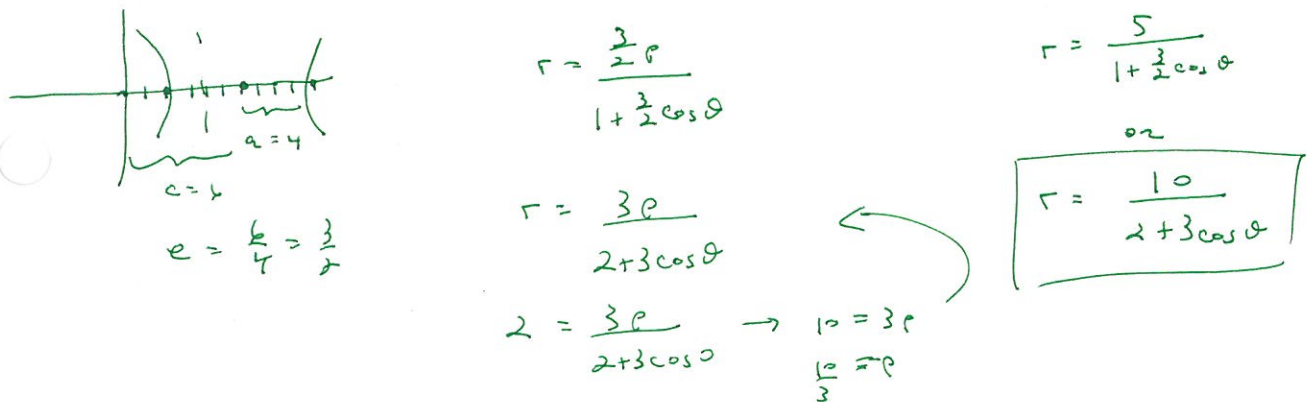 a = 4
c = 6
e = 6/4 = 3/2
r = (3/2 p)/(1 + 3/2 cos θ)
r = 3p/(2+3cos θ)
2 = 3p/(2+3cos 0) → 10 = 3p
10/3 = p
r = 5/(1 + 3/2 cos θ)
or
r = 10/(2+3cos θ)